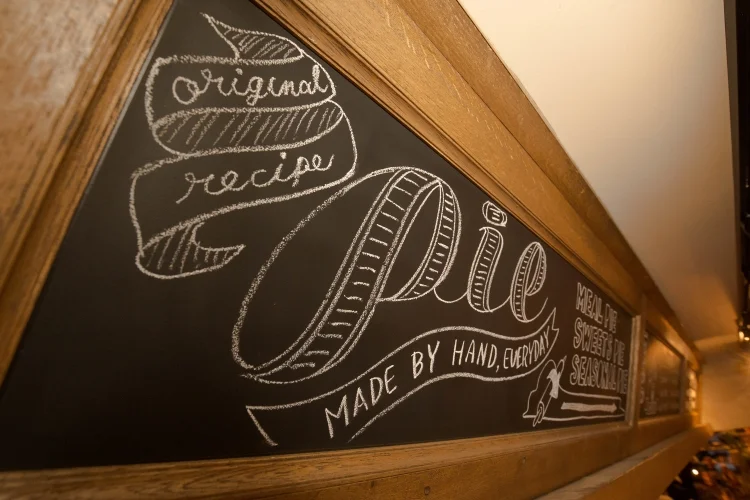 original
recipe
pie
MADE BY HAND, EVERYDAY
MEAL PIE
SWEETS PIE
SEASONAL PIE